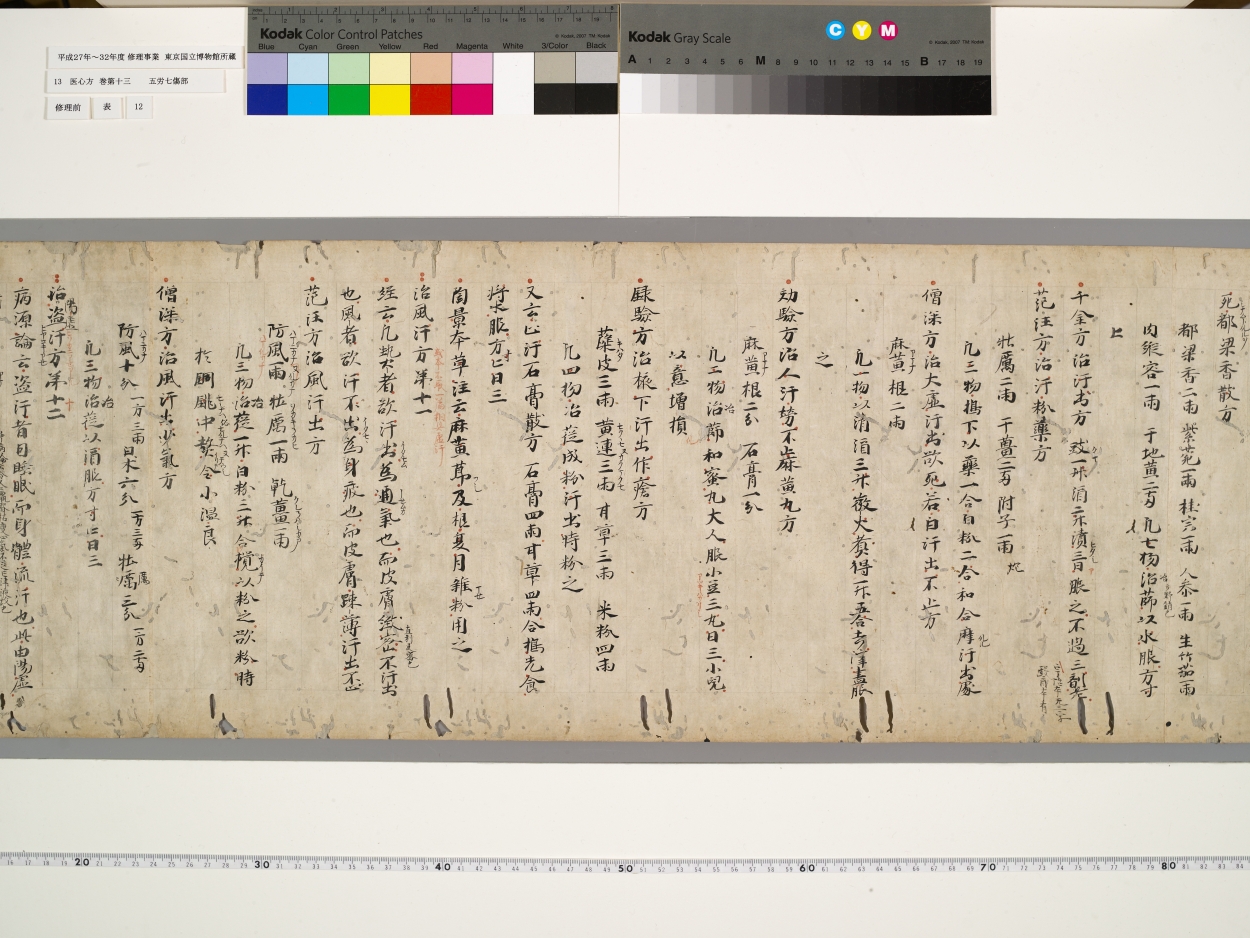 平成27年～32年度 修理事業 東京国立博物館所蔵
13 医心方 巻第十三 五労七傷部
修理前 表 12
Kodak Color Control Patches
Blue Cyan Green Yellow Red Magenta White 3/Color Black
Kodak Gray Scale
C Y M
A 1 2 3 4 5 6 M 8 9 10 11 12 13 14 15 B 17 18 19
死都梁香散方
都梁香二兩 紫菀一兩 桂心一兩 人参一兩 生竹茹一兩
肉縱容一兩 干地黄二兩 凡七物治篩以水服方寸
匕
千金方治汗出方 豉一升酒二升漬三日服之不過三劑
范汪方治汗粉藥方
牡厲二兩 干薑二兩 附子一兩 炮
凡三物搗下以藥一合白粉二合和合摩汗出處
僧深方治大虚汗出欲死若自汗出不止方
麻黄根二兩
凡一物以清酒三升微火煮得一升五合去滓盡服
之
効驗方治人汗勞不止麻黄九方
麻黄根二分 石膏一分
凡二物治篩和蜜丸大人服小豆三丸日三小兒
以意增損
録驗方治掖下汗出作瘡方
薤皮三兩 黄連三兩 甘草三兩 米粉四兩
凡四物治簁成粉汗出時粉之
又云止汗石膏散方 石膏四兩甘草四兩合搗先食
將水服方寸匕日三
陶景本草注云麻黄節及根夏月雜粉用之
治風汗方第十一
經云凡熱者欲汗出為通氣也而皮膚緻密不汗出
也風者欲汗不出為身疲也而皮膚踈薄汗出不止
范汪方治風汗出方
防風一兩 牡厲一兩 乾薑一兩
凡三物治簁一升白粉三升合攪以粉之欲粉時
於銅銚中熬令小温良
僧深方治風汗出少氣方
防風十分 一方三兩 白朮六分 一方三兩 牡厲三分 一方二兩
凡三物治簁以酒服方寸匕日三
治盗汗方第十二
病源論云盗汗者目睡眠而身體流汗也此由陽虚
20 30 40 50 60 70 80